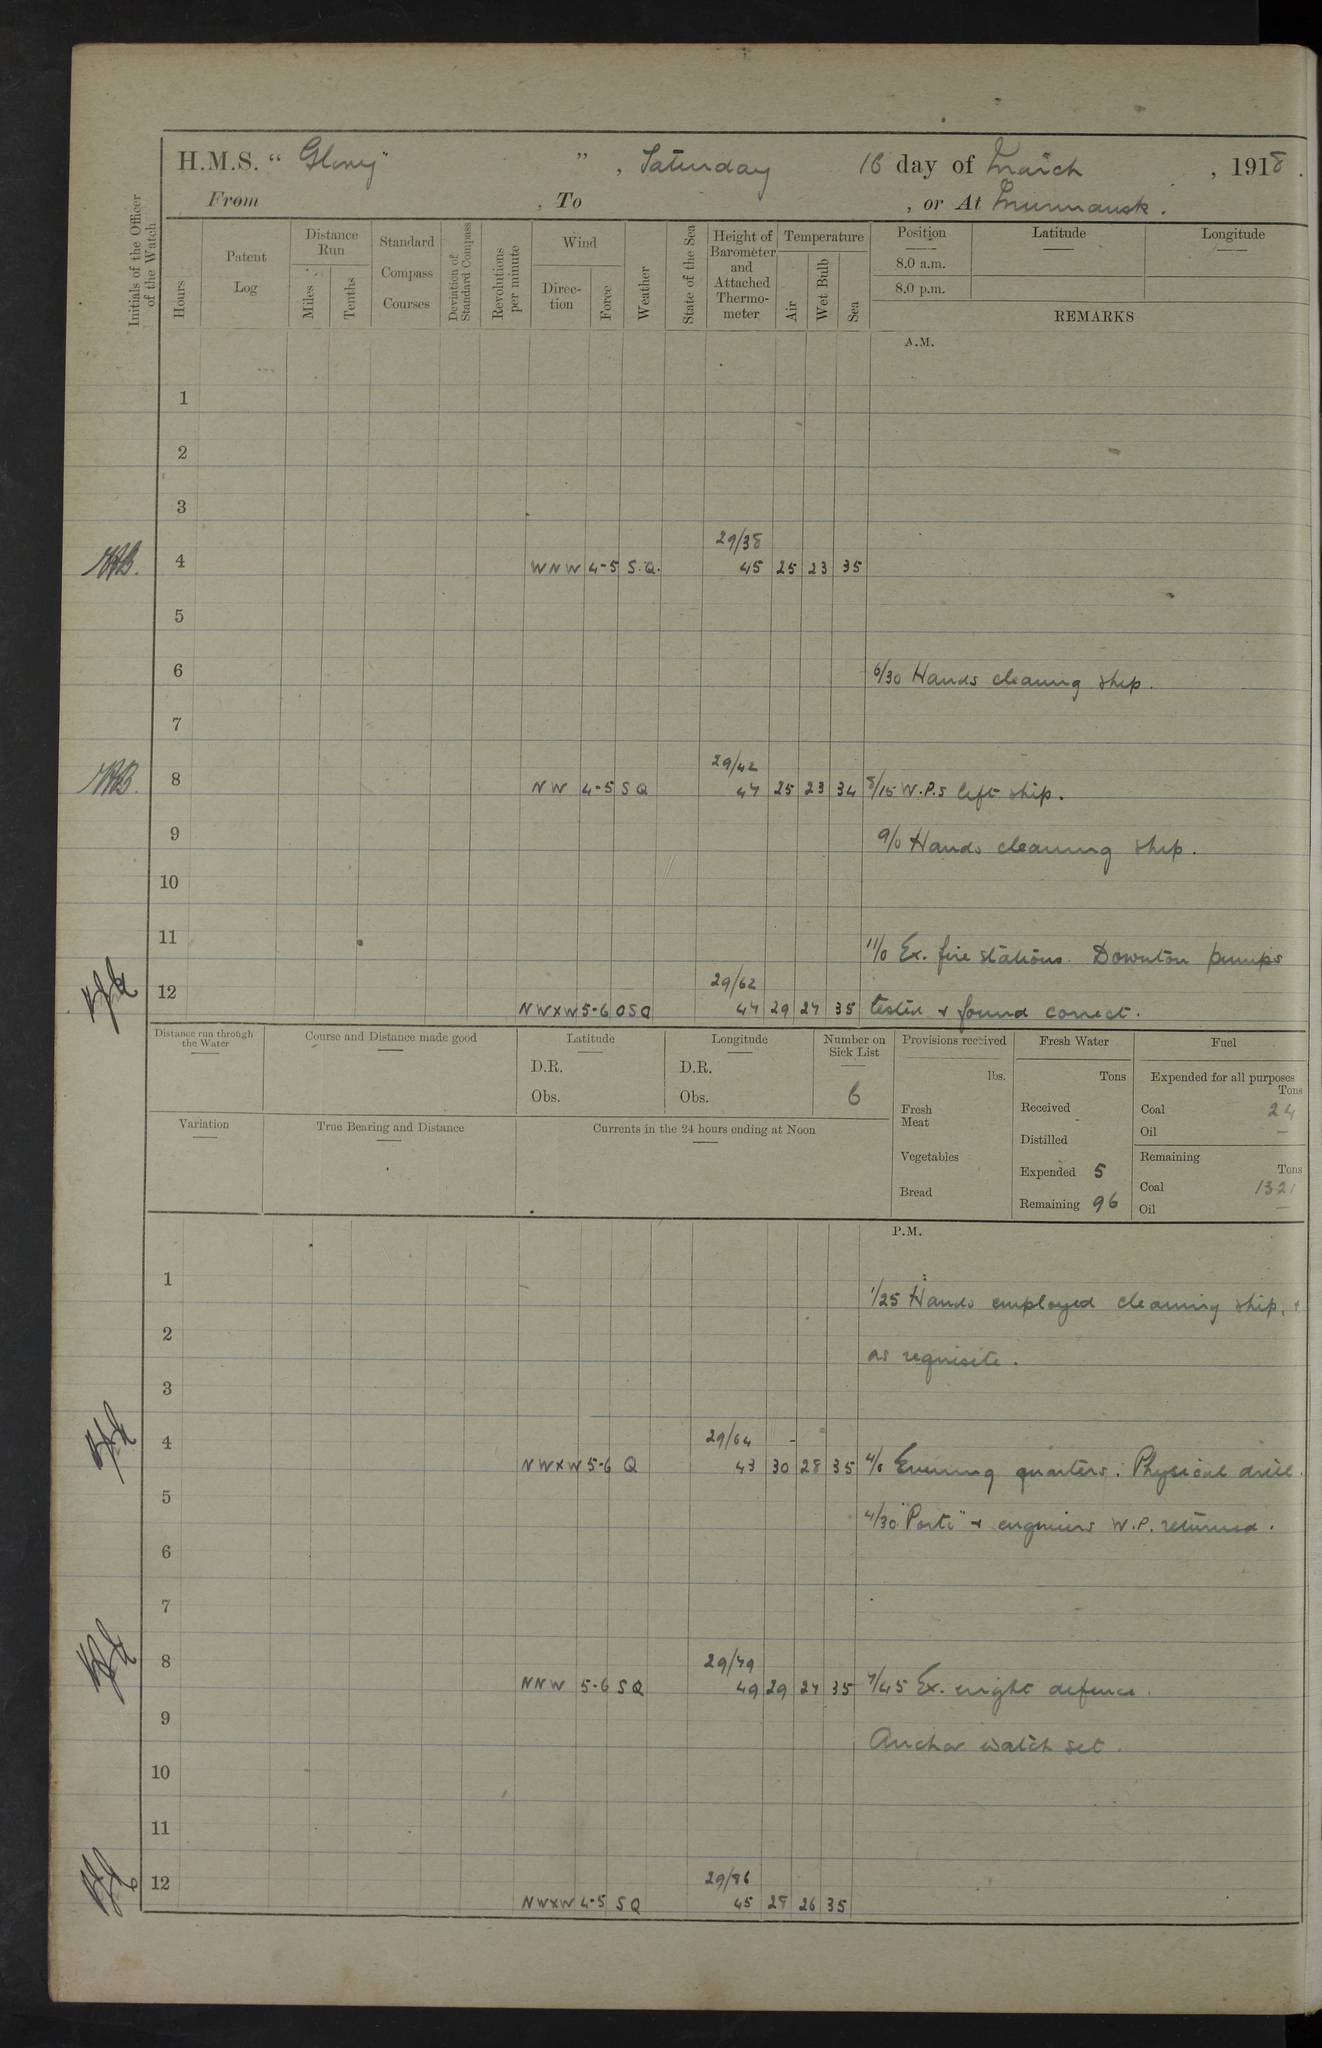 H.M.S. " Glory " , Saturday 16 day of March , 1918 .
From , To , or At Murmansk .
Initials of the Officer of the Watch
Hours
Patent Log
Distance Run
Miles
Tenths
Standard Compass Courses
Deviation of Standard Compass
Revolutions per minute
Wind
Direc-tion
Force
Weather
State of the Sea
Height of Barometer and Attached Thermo-meter
Temperature
Air
Wet Bulb
Sea
Position
8.0 a.m.
8.0 p.m.
Latitude
Longitude
REMARKS
A.M.
1
2
3
29/38
4 WNW 4-5 S.Q. 45 25 23 35
5
6 6/30 Hands cleaning ship.
7
29/42
8 NW 4-5 S Q 47 25 23 34 8/15 W.P.s left ship.
9 9/0 Hands cleaning ship.
10
11 11/0 Ex. fire stations. Downton pumps
29/62
12 NWxW 5-6 O S Q 47 29 27 35 tested + found correct.
Distance run through the Water
Course and Distance made good
Latitude
D.R.
Obs.
Longitude
D.R.
Obs.
Number on Sick List
6
Provisions received
lbs.
Fresh Meat
Vegetables
Bread
Fresh Water
Tons
Received
Distilled
Expended 5
Remaining 96
Fuel
Expended for all purposes
Tons
Coal 24
Oil —
Remaining
Tons
Coal 1321
Oil —
Variation
True Bearing and Distance
Currents in the 24 hours ending at Noon
P.M.
1 1/25 Hands employed cleaning ship, +
2 as requisite.
3
29/64
4 NWxW 5-6 Q 43 30 28 35 4/0 Evening quarters. Physical drill.
5 4/30 "Ports" + engineers W.P. returned.
6
7
29/79
8 NNW 5-6 S Q 49 29 27 35 7/45 Ex. night defence.
9 Anchor watch set.
10
11
29/86
12 NWxW 4-5 S Q 45 28 26 35